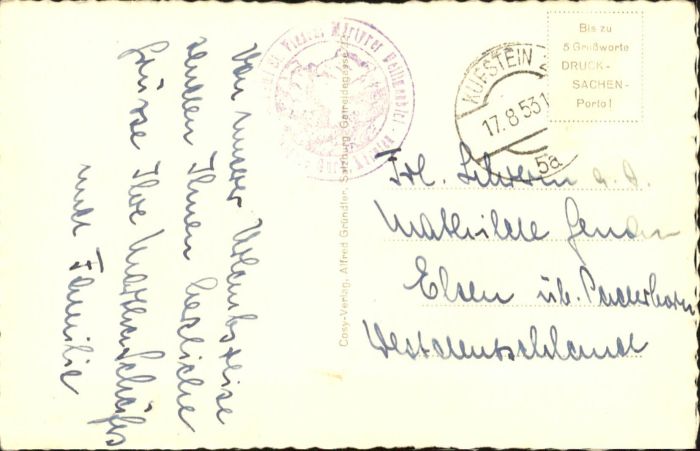 Von unserer Urlaubsreise
senden Ihnen herzliche
Grüsse Ihre
und Familie
Cosy-Verlag, Alfred Gründler, Salzburg, Getreidegasse
KUFSTEIN 2
17.8.53.1
5a
Bis zu
5 Grußworte
DRUCK-
SACHEN-
Porto!
Frl. a. D.
Mathilde
Elsen üb. Paderborn
Westdeutschland